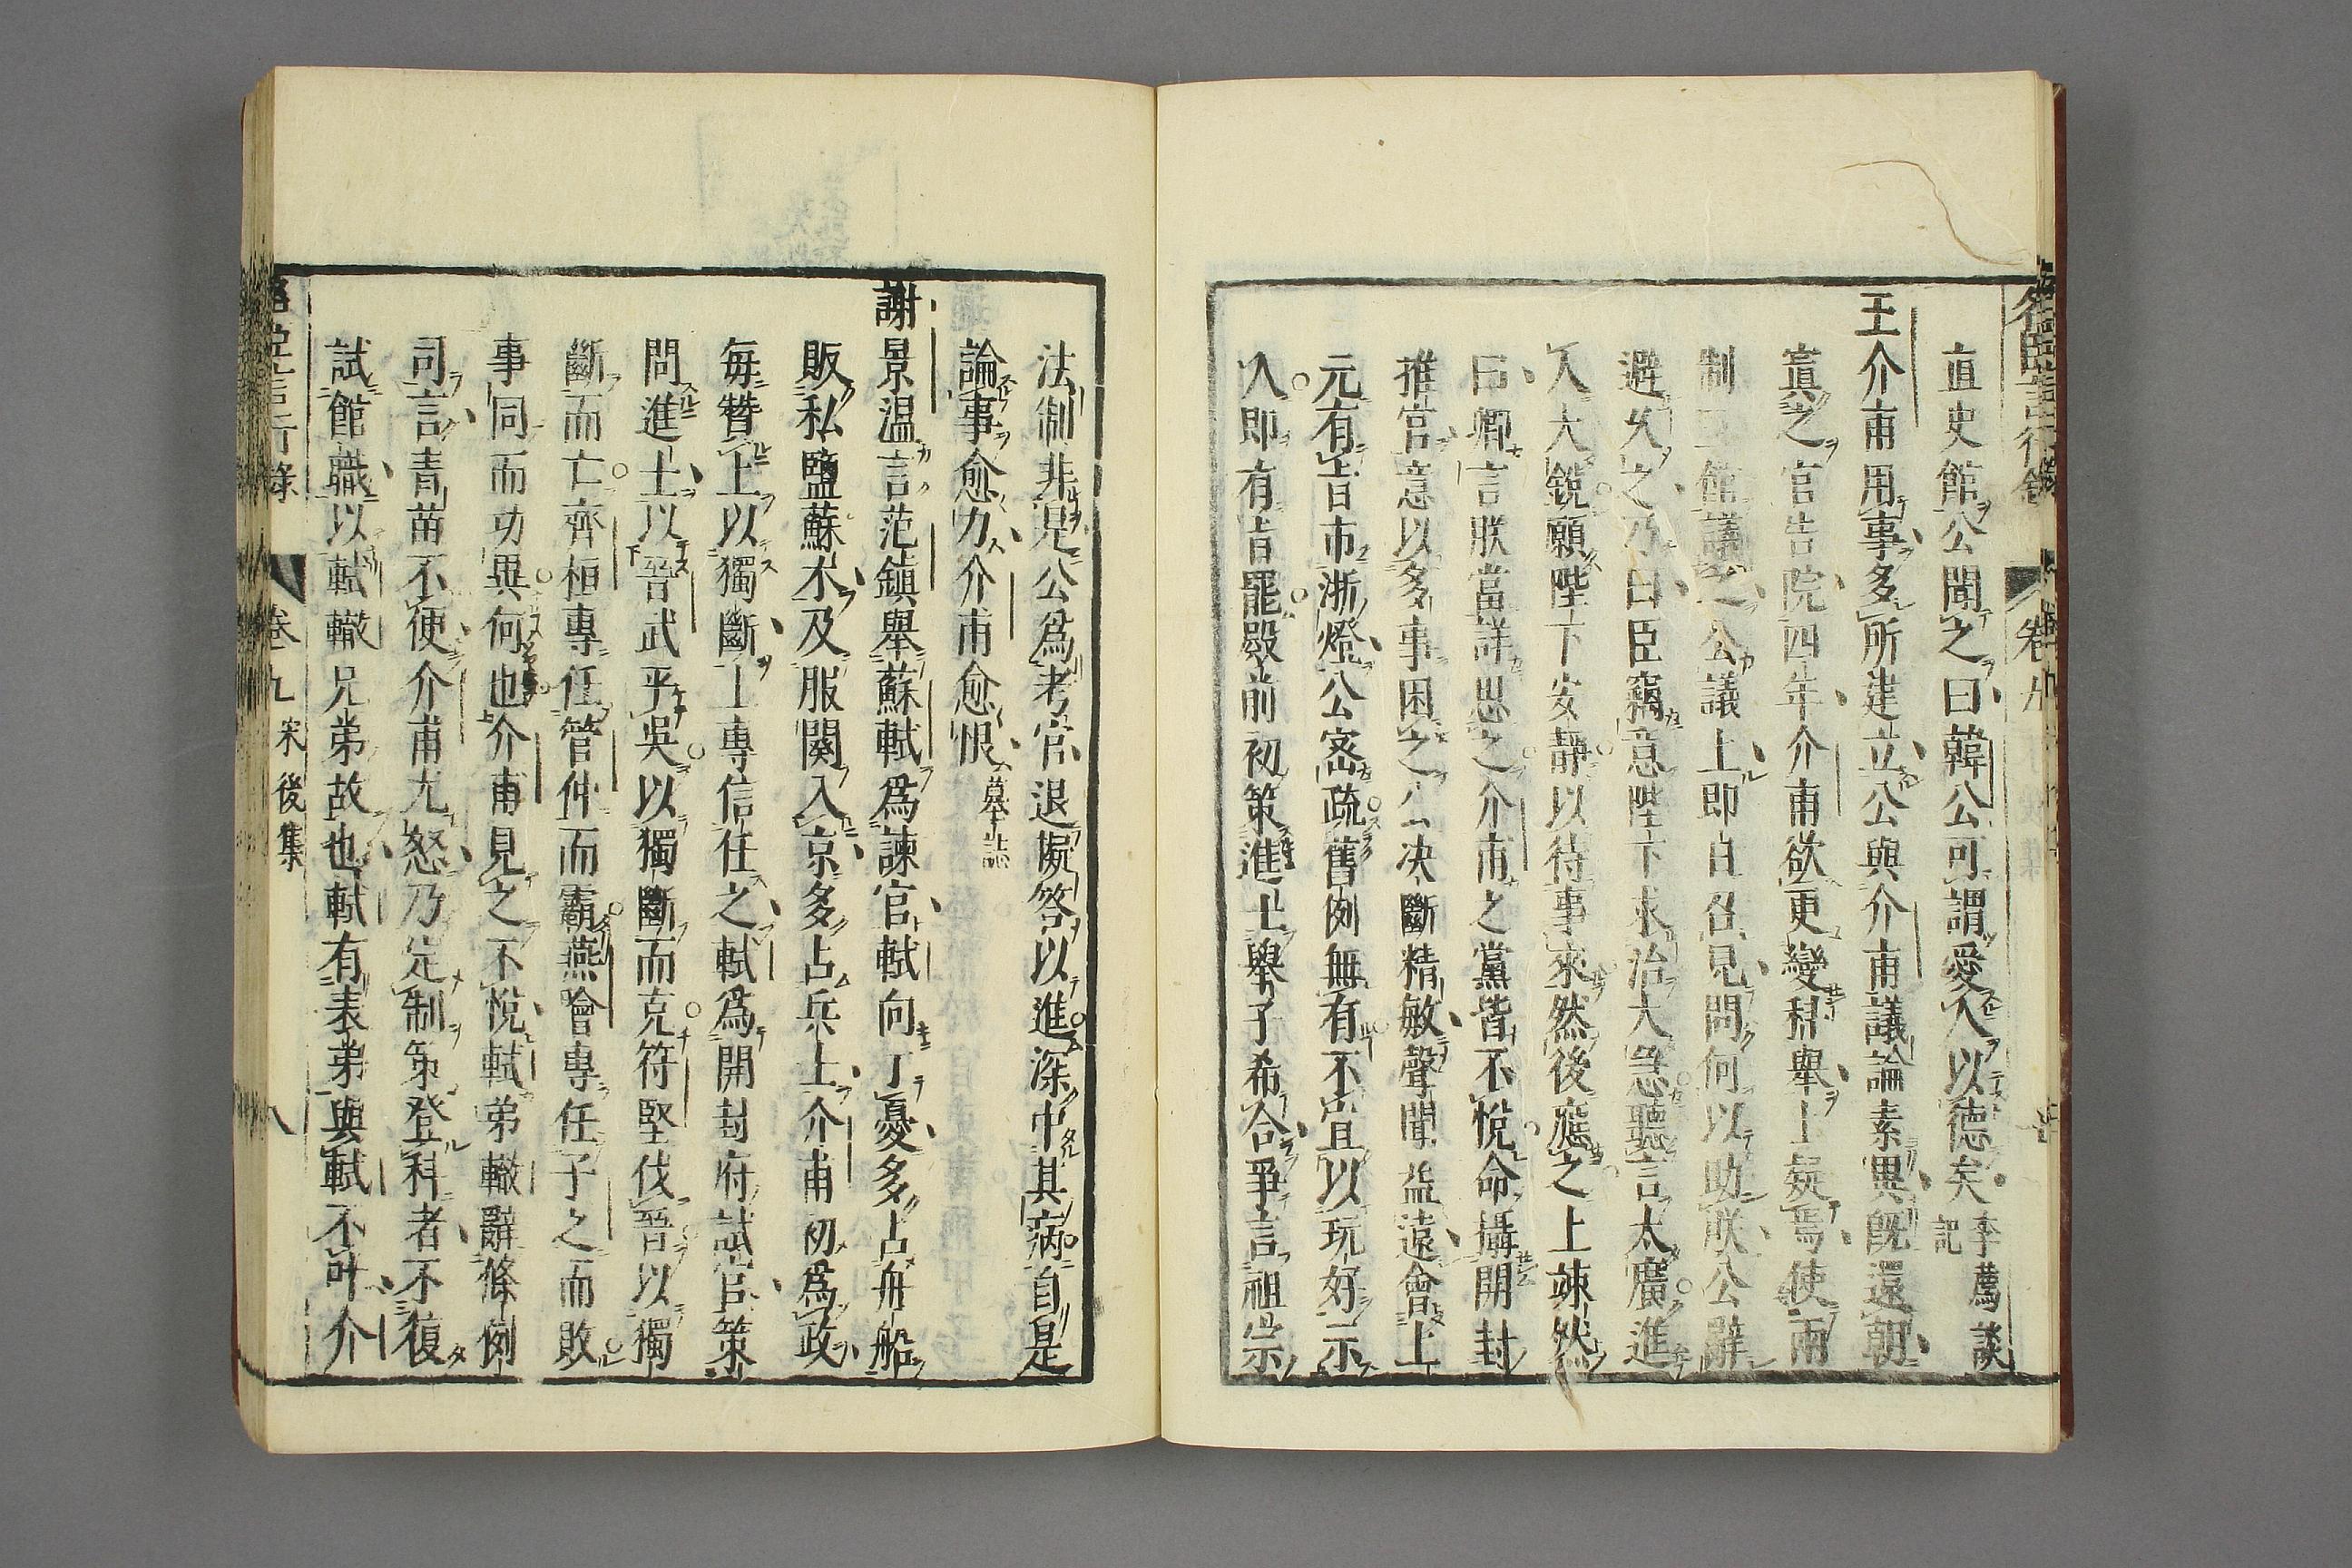 直史館公聞之曰韓公可謂愛人以德矣李薦談記
王介甫用事多所建立公與介甫議論素異既還朝
寘之官告院四年介甫欲更變科舉上疑焉使兩
制三館議之公議上即日召見問何以助朕公辭
避久之乃曰臣竊意陛下求治大急聽言太廣進
人大銳願陛下安靜以待事來然後應之上竦然
曰卿言朕當詳思之介甫之黨皆不悅命攝開封
推官意以多事困之公决斷精敏聲聞益遠會上
元有旨市浙燈公密疏舊例無有不宜以玩好示
人即有旨罷殿前初策進士舉子希合爭言祖宗
法制非是公為考官退擬答以進深中其病自是
論事愈力介甫愈恨墓誌
謝景温言范鎮舉蘇軾為諫官軾向丁憂多占舟船
販私鹽蘇木及服闋入京多占兵士介甫初為政
每贊上以獨斷上專信任之軾為開封府試官策
問進士以晉武平吳以獨斷而克符堅伐晉以獨
斷而亡齊桓專任管仲而霸燕噲專任子之而敗
事同而功異何也介甫見之不悅軾弟轍辭條例
司言青苗不便介甫尤怒乃定制策登科者不復
試館職以軾轍兄弟故也軾有表弟與軾不叶介
卷九 宋後集 八